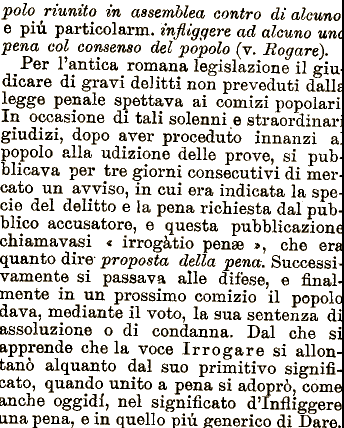 polo riunito in assemblea contro di alcuno
e piú particolarm. infliggere ad alcuno una
pena col consenso del popolo (v. Rogare).
Per l'antica romana legislazione il giu-
dicare di gravi delitti non preveduti dalla
legge penale spettava ai comizi popolari
In occasione di tali solenni e straordinari
giudizi, dopo aver proceduto innanzi a
popolo alla udizione delle prove, si pub-
blicava per tre giorni consecutivi di mer-
cato un avviso, in cui era indicata la spe-
cie del delitto e la pena richiesta dal pub-
blico accusatore, e questa pubblicazione
chiamavasi « irrogàtio penæ », che era
quanto dire proposta della pena. Successi-
vamente si passava alle difese, e final-
mente in un prossimo comizio il popolo
dava, mediante il voto, la sua sentenza di
assoluzione o di condanna. Dal che si
apprende che la voce Irrogare si allon-
tanò alquanto dal suo primitivo signifi-
cato, quando unito a pena si adoprò, come
anche oggidí, nel significato d'Infliggere
una pena, e in quello piú generico di Dare.